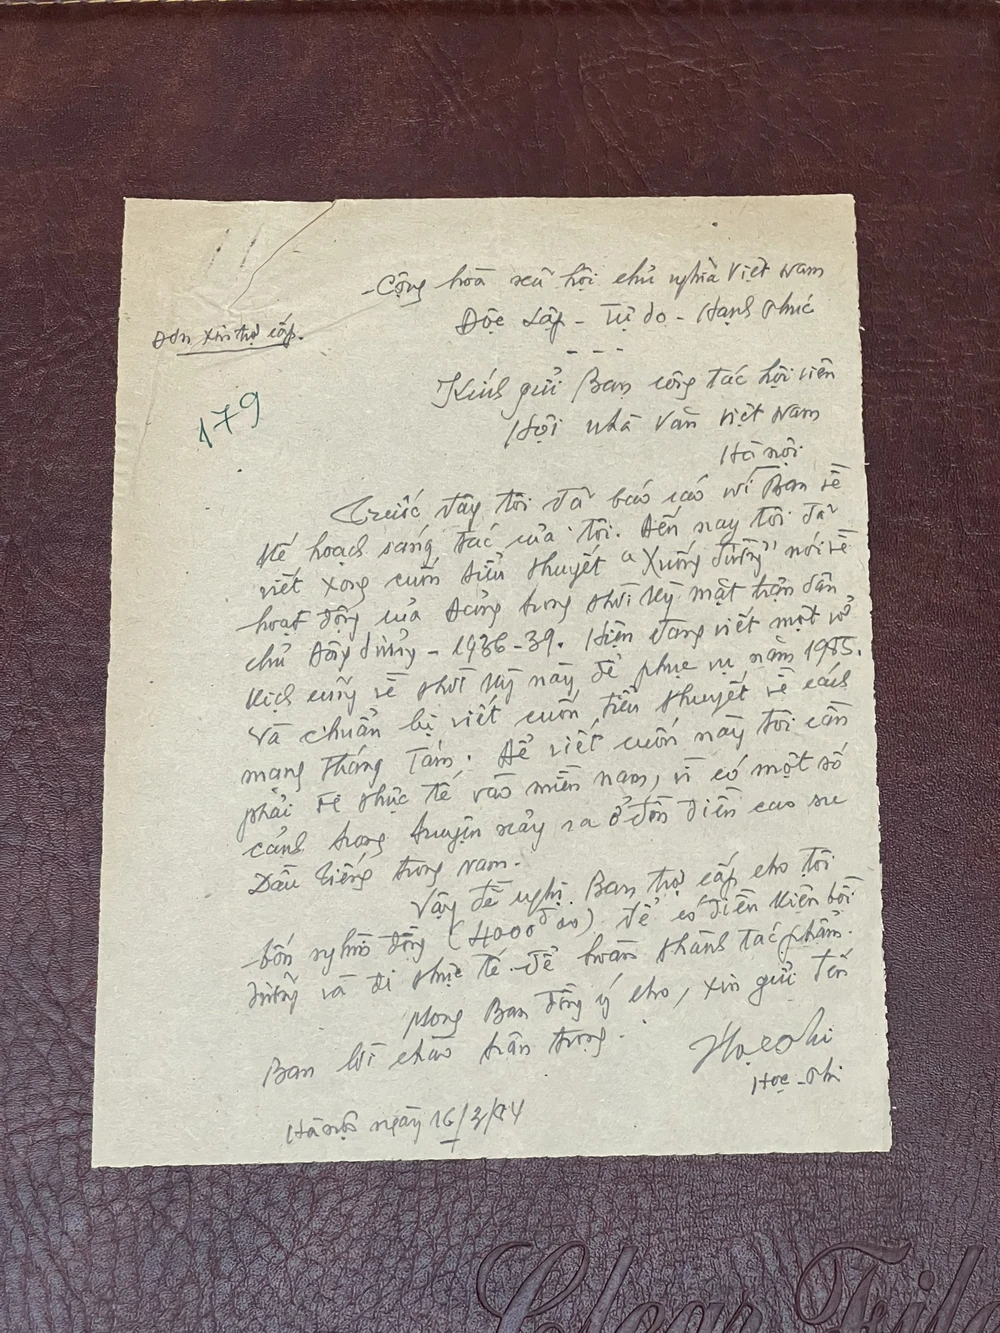 Cộng hòa xã hội chủ nghĩa Việt Nam
Độc Lập - Tự do - Hạnh Phúc
Đơn xin trợ cấp.
179
Kính gửi Ban công tác hội viên
Hội nhà văn Việt Nam
Hà nội.
Trước đây tôi đã báo cáo với Ban về
kế hoạch sáng tác của tôi. Đến nay tôi đã
viết xong cuốn tiểu thuyết "Xuống đường" nói về
hoạt động của Đảng trong thời kỳ mặt trận dân
chủ Đông dương - 1936-39. Hiện đang viết một vở
kịch cũng về thời kỳ này để phục vụ năm 1985.
và chuẩn bị viết cuốn tiểu thuyết về cách
mạng tháng Tám. Để viết cuốn này tôi cần
phải về thực tế vào miền nam, vì có một số
cảnh trong truyện xảy ra ở đồn điền cao su
Dầu Tiếng trong Nam.
Vậy đề nghị Ban trợ cấp cho tôi
bốn nghìn đồng (4000đ00) để có điều kiện bồi
dưỡng và đi thực tế để hoàn thành tác phẩm.
Mong Ban đồng ý cho, xin gửi tới
Ban lời chào trân trọng.
Học Phi
Học Phi
Hà nội ngày 16/3/84
Clear File